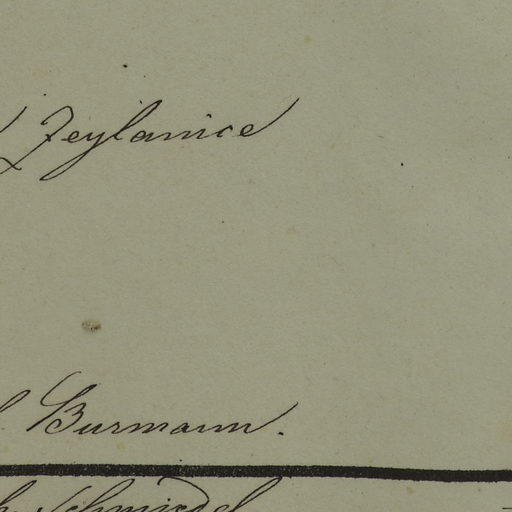 Zeylanice
Burmann.
Schmiedel